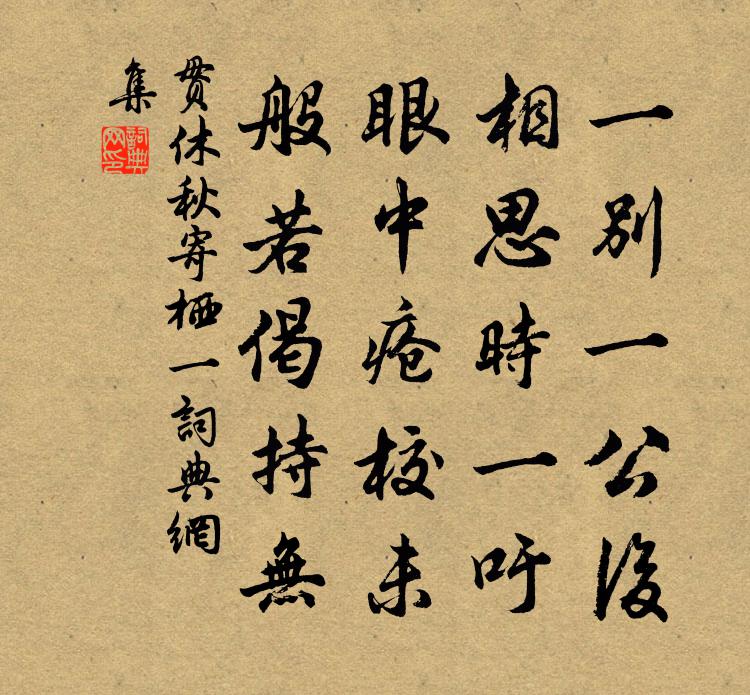 一别一公後
相思時一吁
眼中瘡校未
般若偈持無
貫休秋寄栖一詞典網
集
詞典
网印